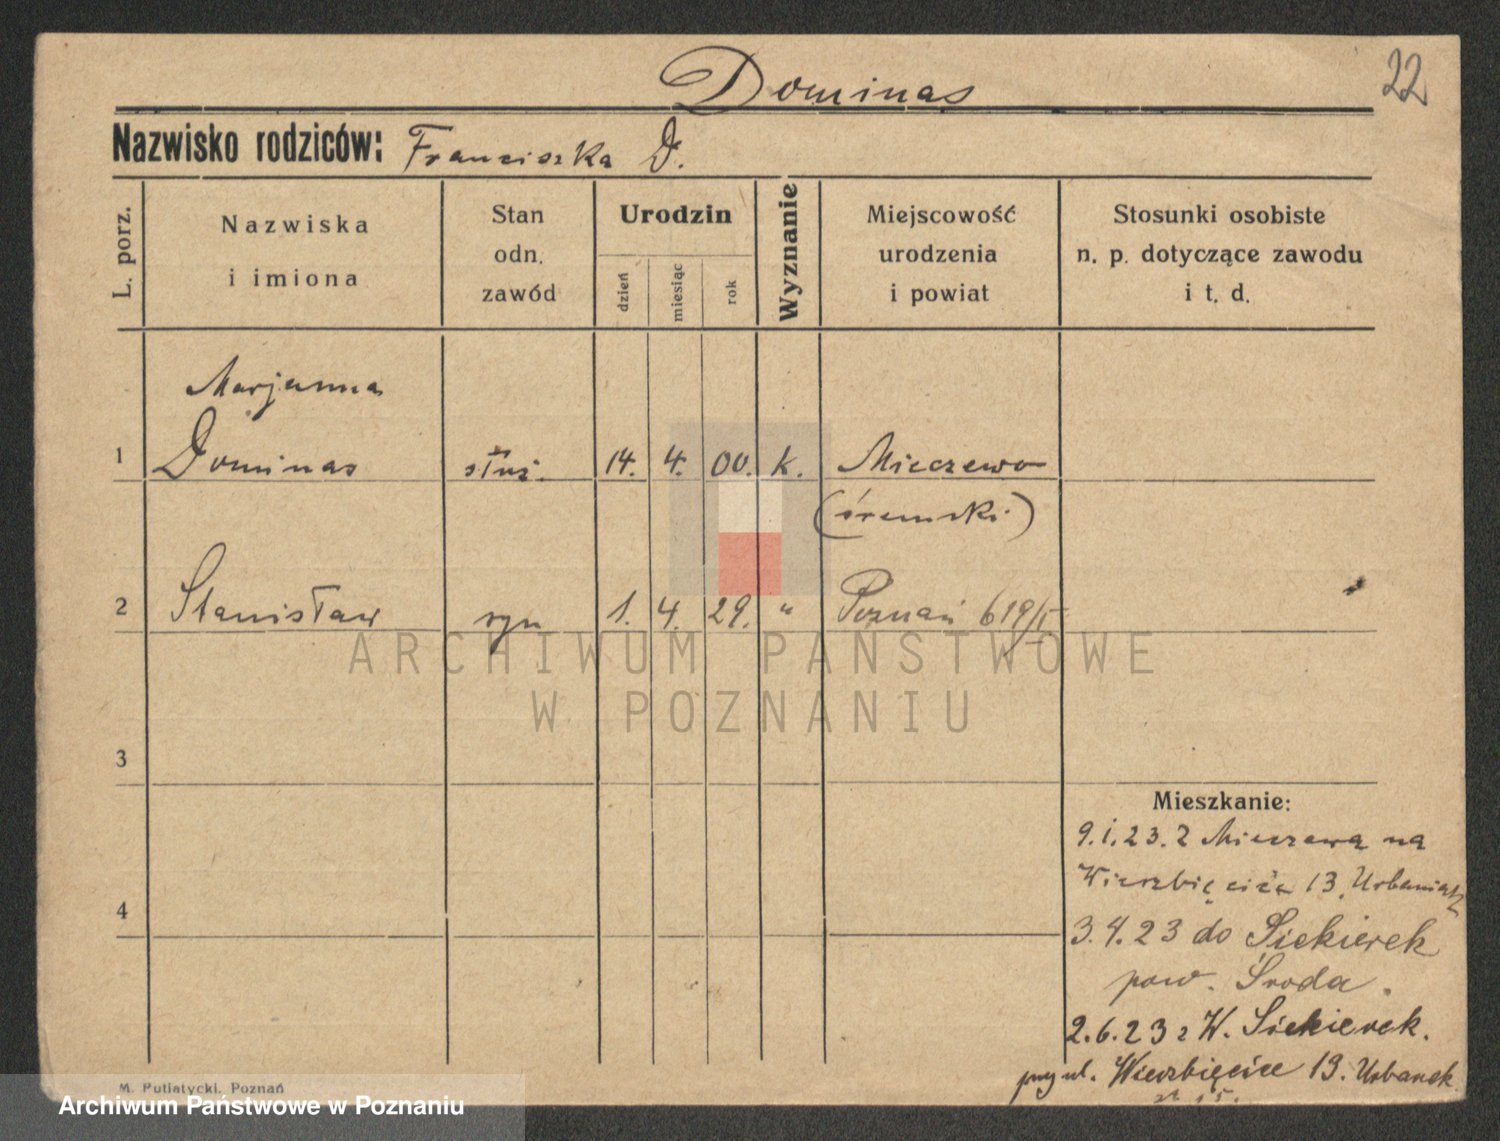 22
Dominas
Nazwisko rodziców: Franciszka D.
L. porz.
Nazwiska i imiona
Stan odn. zawód
Urodzin
dzień
miesiąc
rok
Wyznanie
Miejscowość urodzenia i powiat
Stosunki osobiste n. p. dotyczące zawodu i t. d.
Marjanna
1 Dominas służ. 14. 4. 00. k. Mieczewo
(śremski)
2 Stanisław syn 1. 4. 29. " Poznań 619/I
ARCHIWUM PAŃSTWOWE
W POZNANIU
3
Mieszkanie:
9.1.23. z Mieczewa na
Wierzbięcice 13. Urbaniak
4
3.4.23 do Siekierek
pow. Środa.
2.6.23 z W. Siekierek.
przy ul. Wierzbięcice 13. Urbanek
M. Putiatycki, Poznań
Archiwum Państwowe w Poznaniu